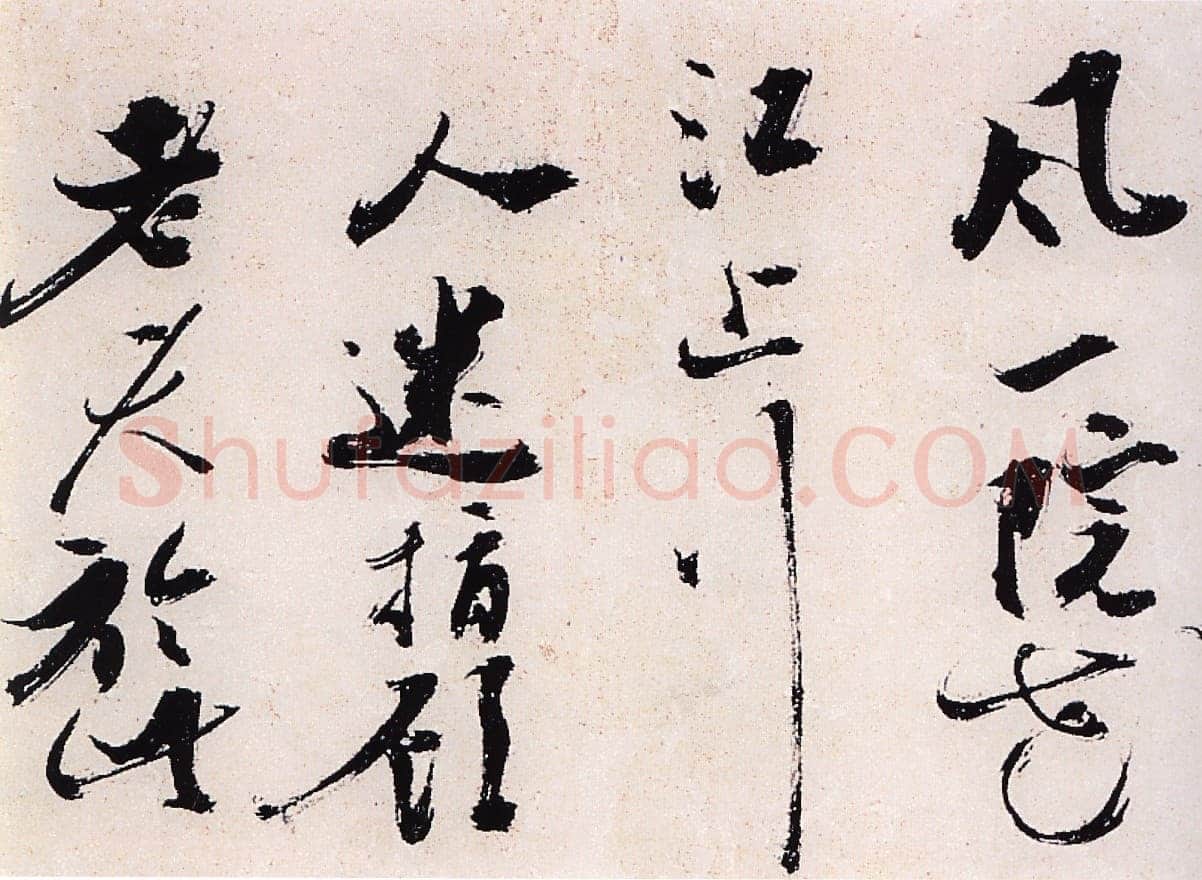 風一院
江上
人迷指顧
老夫於此
Shufaziliao.COM